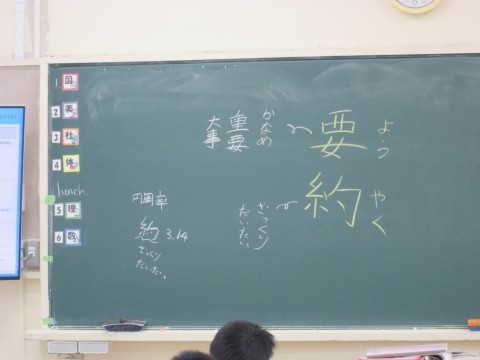 要約
ようやく
かなめ
重要
大事
ざっくり
だいたい
円周率
約 3.14
ざっくり
だいたい。
1 国
2 英
3 社
4 体
lunch
5 理
6 数